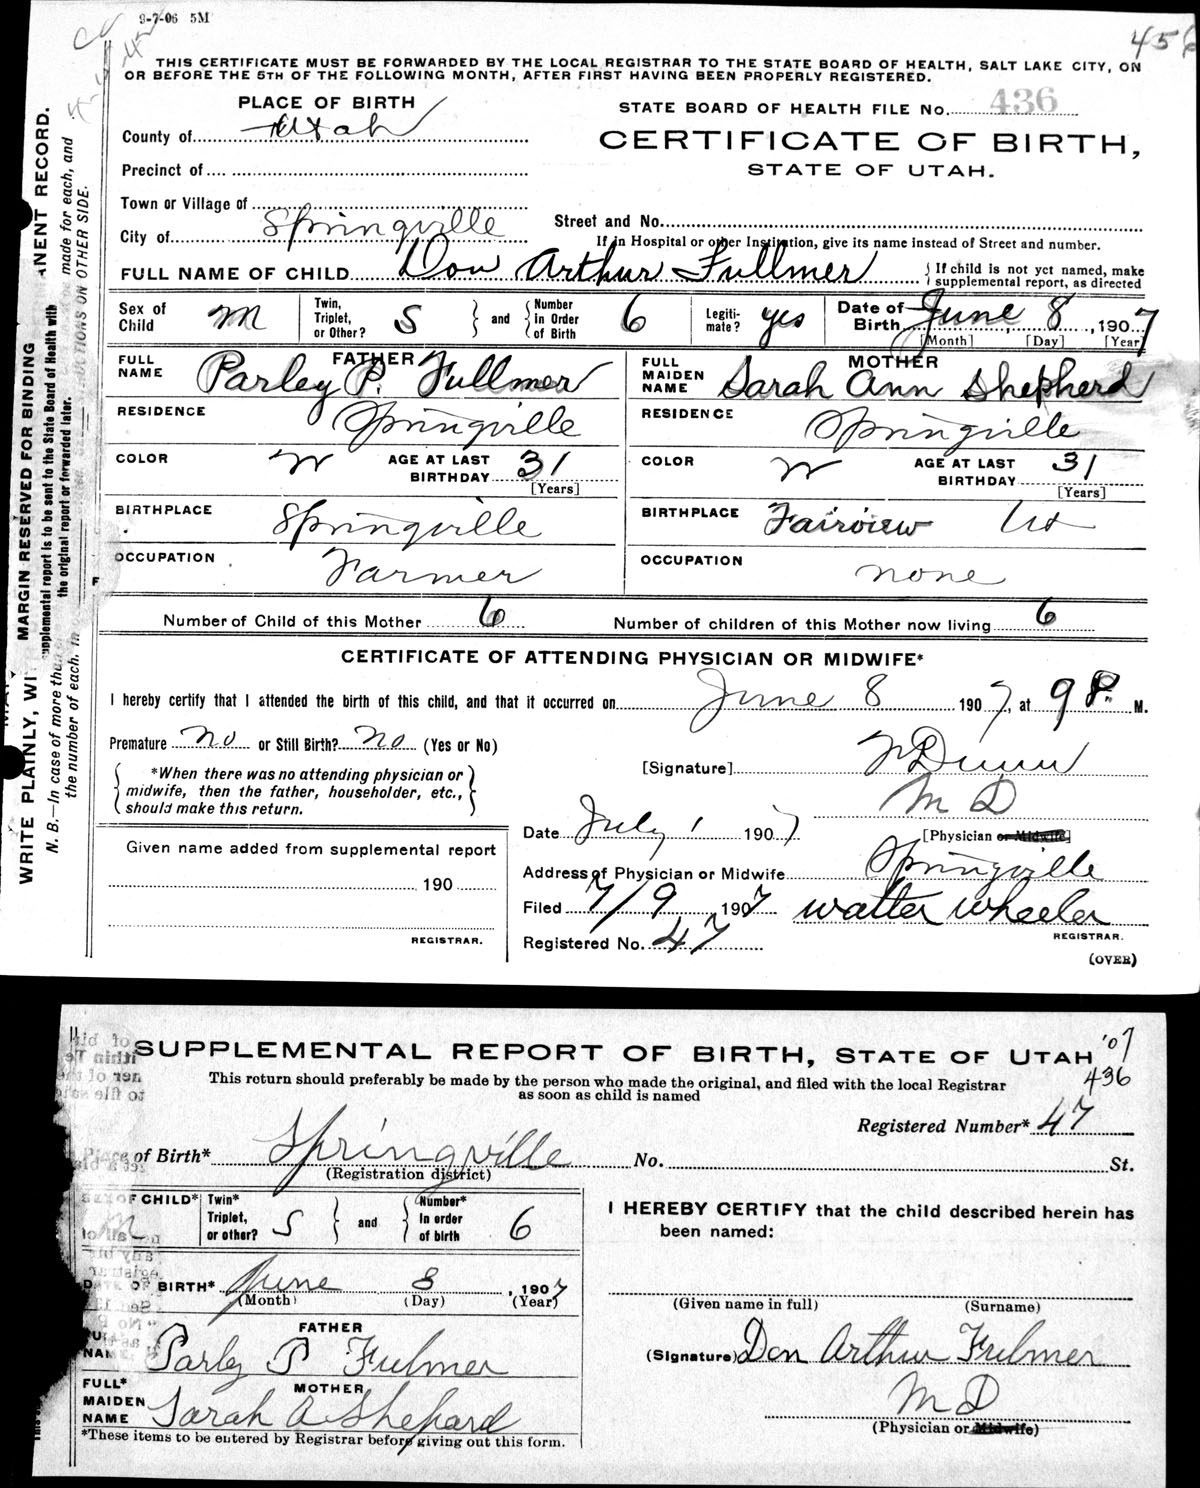 9-7-06 5M
456
THIS CERTIFICATE MUST BE FORWARDED BY THE LOCAL REGISTRAR TO THE STATE BOARD OF HEALTH, SALT LAKE CITY, ON
OR BEFORE THE 5TH OF THE FOLLOWING MONTH, AFTER FIRST HAVING BEEN PROPERLY REGISTERED.
PLACE OF BIRTH
STATE BOARD OF HEALTH FILE No. 436
County of Utah
CERTIFICATE OF BIRTH,
STATE OF UTAH.
Precinct of
Town or Village of
City of Springville
Street and No.
If in Hospital or other Institution, give its name instead of Street and number.
FULL NAME OF CHILD Don Arthur Fullmer
If child is not yet named, make supplemental report, as directed
Sex of Child M Twin, Triplet, or Other? S and Number in Order of Birth 6 Legitimate? yes Date of Birth June 8, 1907
[Month] [Day] [Year]
FATHER
FULL NAME Parley P. Fullmer
RESIDENCE Springville
COLOR W AGE AT LAST BIRTHDAY 31
[Years]
BIRTHPLACE Springville
OCCUPATION Farmer
MOTHER
FULL MAIDEN NAME Sarah Ann Shepherd
RESIDENCE Springville
COLOR W AGE AT LAST BIRTHDAY 31
[Years]
BIRTHPLACE Fairview Ut
OCCUPATION none
Number of Child of this Mother 6 Number of children of this Mother now living 6
CERTIFICATE OF ATTENDING PHYSICIAN OR MIDWIFE*
I hereby certify that I attended the birth of this child, and that it occurred on June 8 1907, at 9 P. M.
Premature no or Still Birth? no (Yes or No)
*When there was no attending physician or
midwife, then the father, householder, etc.,
should make this return.
[Signature] F Dunn
M D
Date July 1 1907
[Physician or Midwife]
Address of Physician or Midwife Springville
Filed 7/9 1907 Walter Wheeler
REGISTRAR.
Registered No. 47
(OVER)
Given name added from supplemental report
190
REGISTRAR.
MARGIN RESERVED FOR BINDING
WRITE PLAINLY, WI
NENT RECORD.
N. B.—In case of more than
made for each, and
the number of each, in
CTIONS ON OTHER SIDE.
supplemental report is to be sent to the State Board of Health with
the original report or forwarded later.
SUPPLEMENTAL REPORT OF BIRTH, STATE OF UTAH
'07
436
This return should preferably be made by the person who made the original, and filed with the local Registrar
as soon as child is named
Registered Number* 47
Place of Birth* Springville No. St.
(Registration district)
SEX OF CHILD* M Twin* Triplet, or other? S and Number* in order of birth 6
DATE OF BIRTH* June 8, 1907
(Month) (Day) (Year)
FATHER
FULL NAME Parley P Fulmer
MOTHER
FULL* MAIDEN NAME Sarah A Shepard
*These items to be entered by Registrar before giving out this form.
I HEREBY CERTIFY that the child described herein has
been named:
(Given name in full) (Surname)
(Signature) Don Arthur Fulmer
M D
(Physician or Midwife)